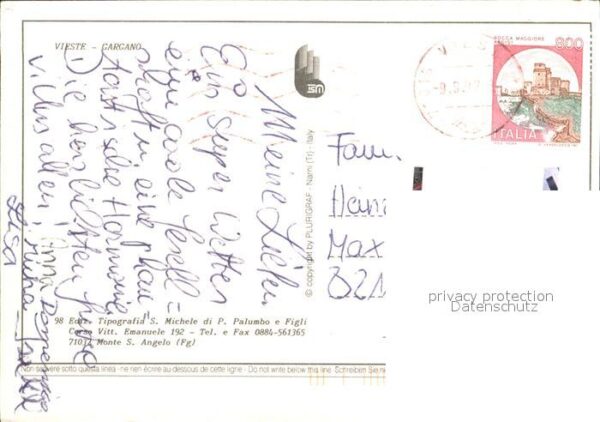 VIESTE - GARGANO
Meine Lieben
Ein super Wetter
eine tolle Gesell=
schaft u. eine phan=
tastische Harmonie
Die herzlichsten
v. uns allen
Anna
Lisa
Fam.
Max
821
ROCCA MAGGIORE
800
ITALIA
© copyright by PLURIGRAF - Narni (Tr) - Italy
98 Ediz. Tipografia S. Michele di P. Palumbo e Figli
Corso Vitt. Emanuele 192 - Tel. e Fax 0884-561365
71037 Monte S. Angelo (Fg)
Non scrivere sotto questa linea - ne rien écrire au dessous de cette ligne - Do not write below this line Schreiben Sie
privacy protection
Datenschutz